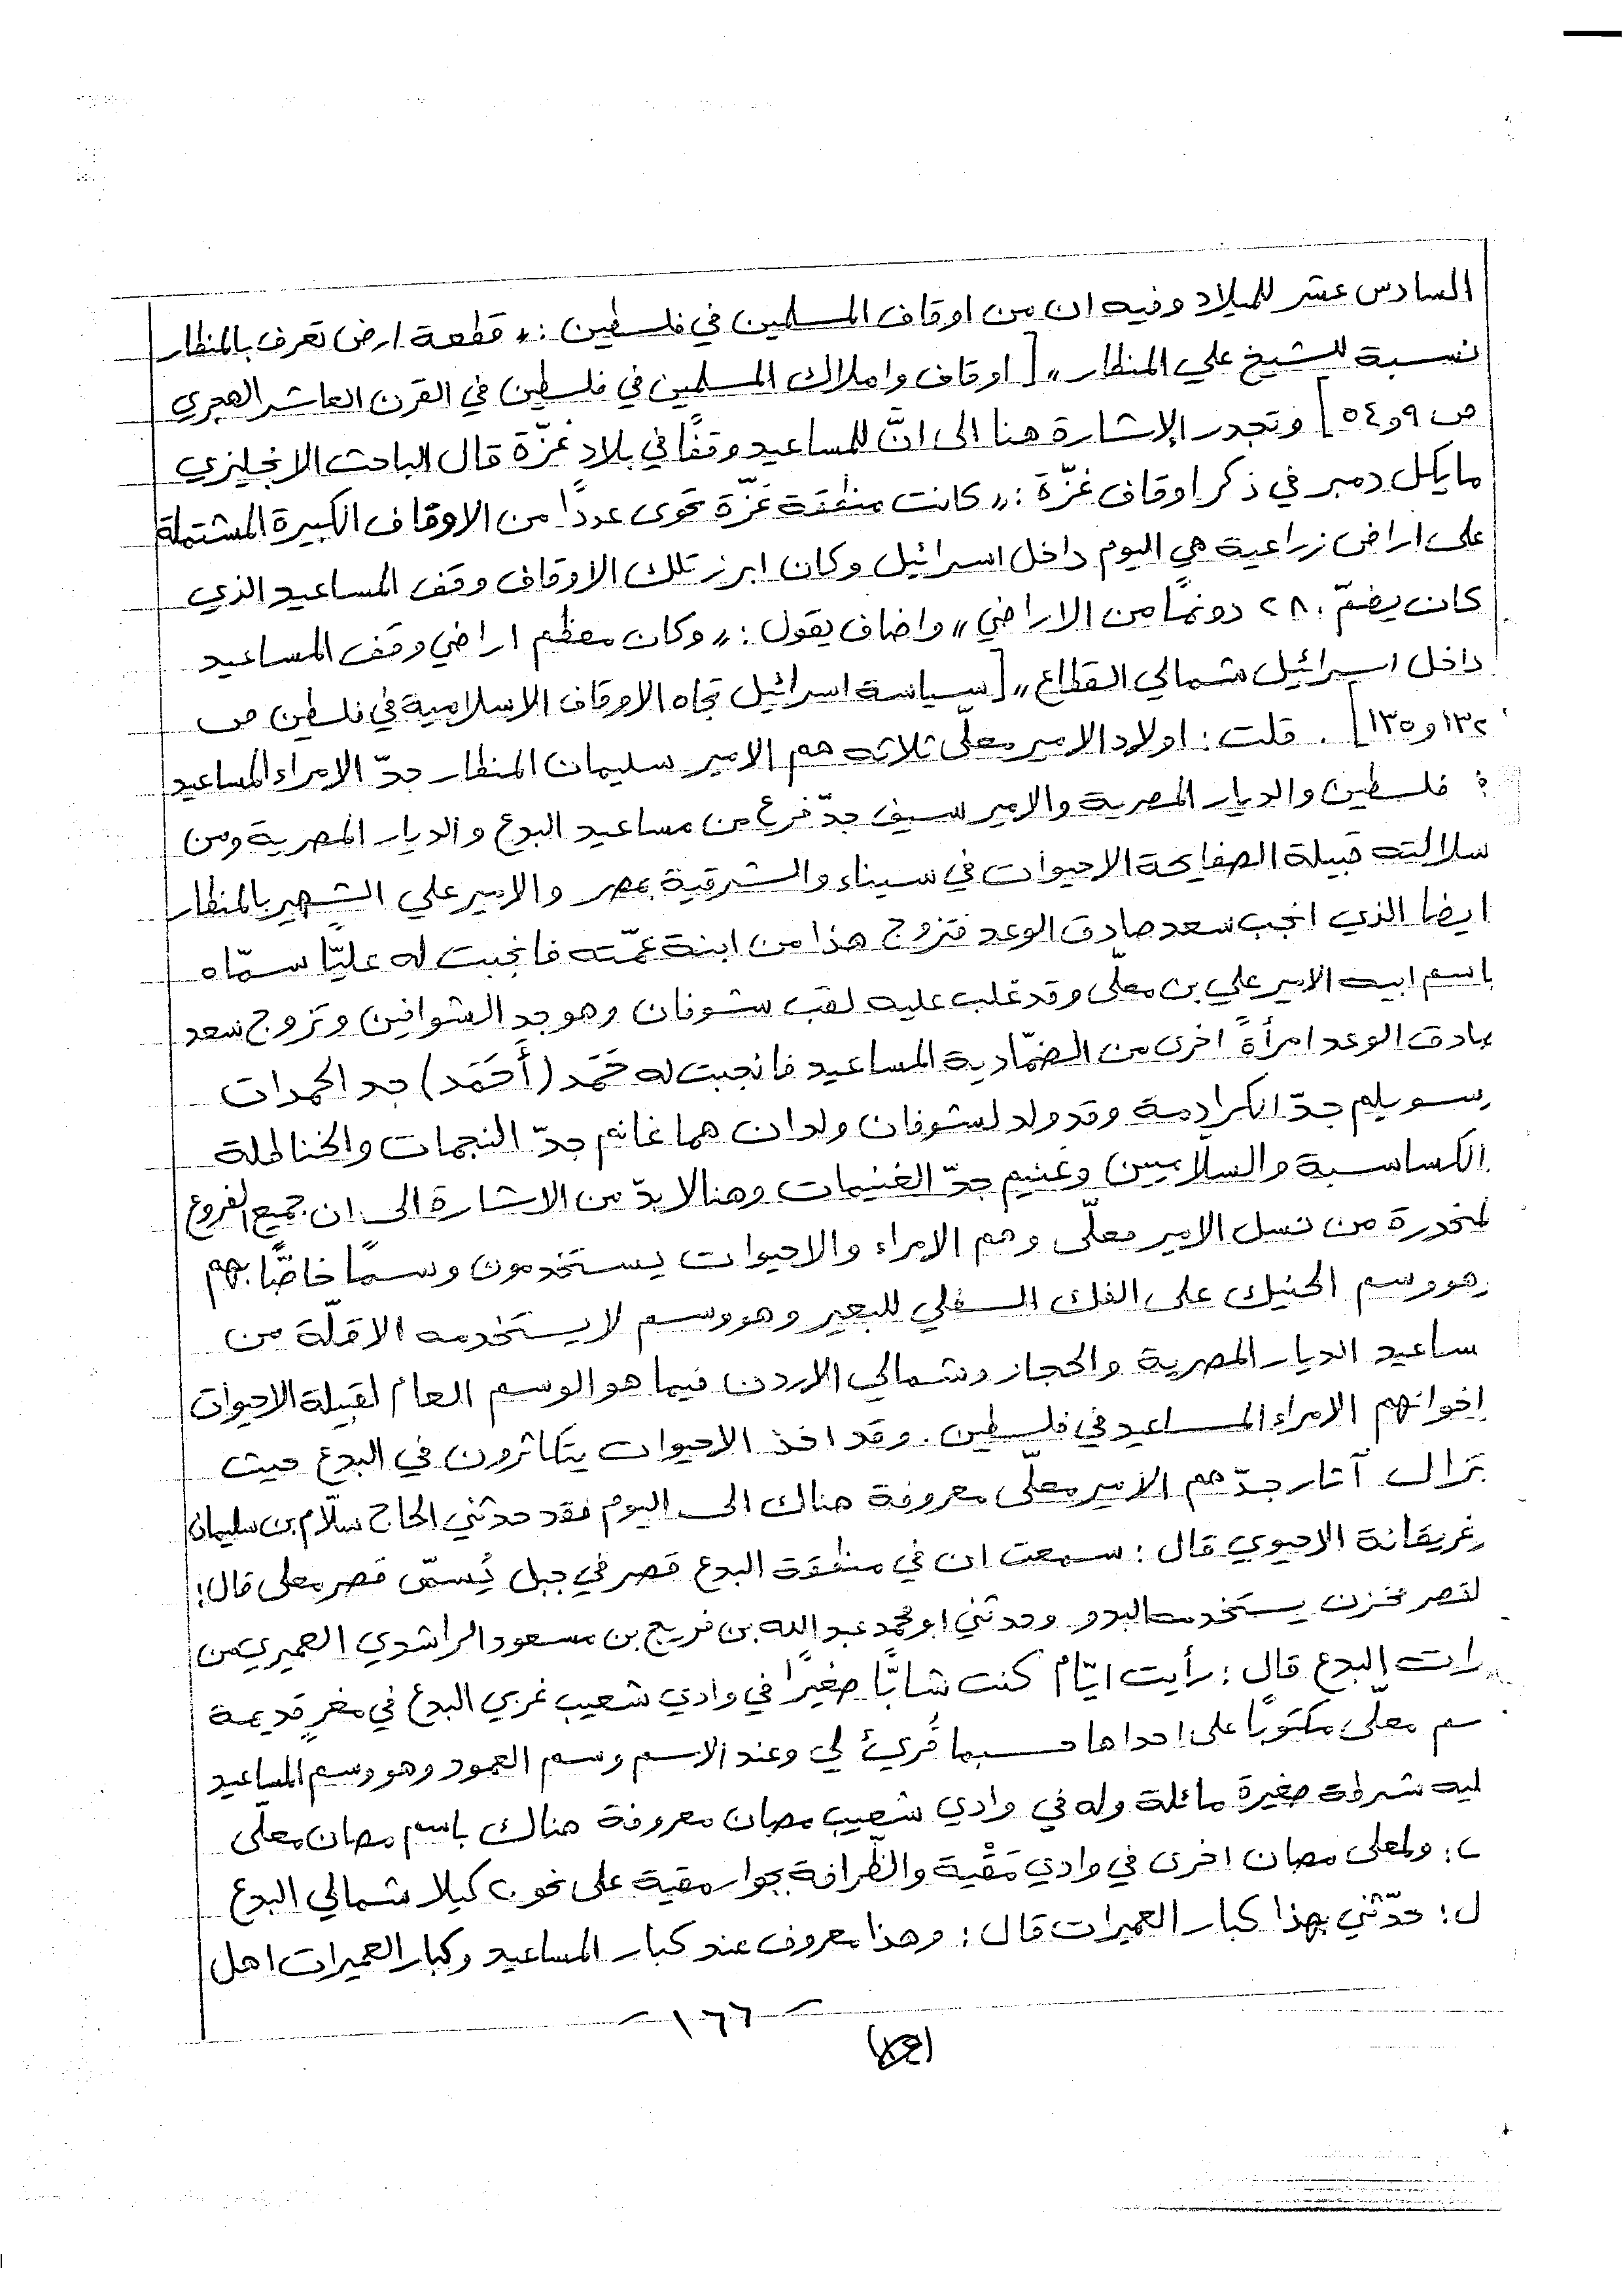 السادس عشر للميلاد وفيه ان من اوقاف المسلمين في فلسطين : « قطعة ارض تعرف بالمنطار
نسبة للشيخ علي المنطار » [ اوقاف واملاك المسلمين في فلسطين في القرن العاشر الهجري
ص ٩ و ٥٤ ] وتجدر الإشارة هنا الى انَّ للمساعيد وقفًا في بلاد غزّة قال الباحث الانجليزي
مايكل دمبر في ذكر اوقاف غزّة : « كانت منطقة غزّة تحوى عددًا من الاوقاف الكبيرة المشتملة
على اراض زراعية هي اليوم داخل اسرائيل وكان ابرز تلك الاوقاف وقف المساعيد الذي
كان يضمّ ٢٨٠ دونمًا من الاراضي » واضاف يقول : « وكان معظم اراضي وقف المساعيد
داخل اسرائيل شمالي القطاع » [ سياسة اسرائيل تجاه الاوقاف الاسلامية في فلسطين ص
١٣٢ و ١٣٥ ] . قلت : اولاد الامير معلّى ثلاثه هم الامير سليمان المنطار جدّ الامراء المساعيد
فلسطين والديار المصرية والامير سيف جدّ فرع من مساعيد البدع والديار المصرية ومن
سلالته قبيلة الصفايحة الاحيوات في سيناء والشرقية بمصر والامير علي الشهير بالمنطار
ايضا الذي انجب سعد صادق الوعد فتزوج هذا من ابنة عمّته فانجبت له عليًّا سمّاه
باسم ابيه الامير علي بن معلّى وقد غلب عليه لقب شوفان وهو جد الشوافين وتزوج سعد
صادق الوعد امرأةً اخرى من الضمّادية المساعيد فانجبت له حَمَد (أَحَمَد) جد الحمدات
وسويلم جدّ الكرادمة وقد ولد لشوفان ولدان هما غانم جدّ النجمات والخناطلة
الكساسبة والسلاميين وغنيم جدّ الغنيمات وهنا لا بدّ من الاشارة الى ان جميع الفروع
لمنحدرة من نسل الامير معلّى وهم الامراء والاحيوات يستخدمون وسمًا خاصًّا بهم
وهو وسم الحنيك على الفك السفلي للبعير وهو وسم لا يستخدمه الا قلّة من
ساعيد الديار المصرية والحجاز وشمالي الاردن فيما هو الوسم العام لقبيلة الاحيوات
اخوانهم الامراء المساعيد في فلسطين . وقد اخذ الاحيوات يتكاثرون في البدع حيث
تزال آثار جدّهم الامير معلّى معروفة هناك الى اليوم فقد حدثني الحاج سلّام بن سليمان
غريقانة الاحيوي قال : سمعت ان في منطقة البدع قصر في جبل يُسمّى قصر معلى قال :
لقصر مخزن يستخدمه البدو وحدثني ابو محمد عبد الله بن فريج بن مسعود الراشدي العميري من
رات البدع قال : رأيت ايّام كنت شابًّا صغيرًا في وادي شعيب غربي البدع في مغرٍ قديمة
سم معلّى مكتوبًا على احداها حسبما قُرئ لي وعند الاسم وسم العمود وهو وسم المساعيد
ليه شرطة صغيرة مائلة وله في وادي شعيب مصان معروفة هناك باسم مصان معلّى
ولمعلى مصان اخرى في وادي مَقْية والظّرافة بجوار مقية على نحو ٢٠ كيلا شمالي البدع
ل : حدّثني بهذا كبار العميرات قال : وهذا معروف عند كبار المساعيد وكبار العميرات اهل
— ١٦٦ —